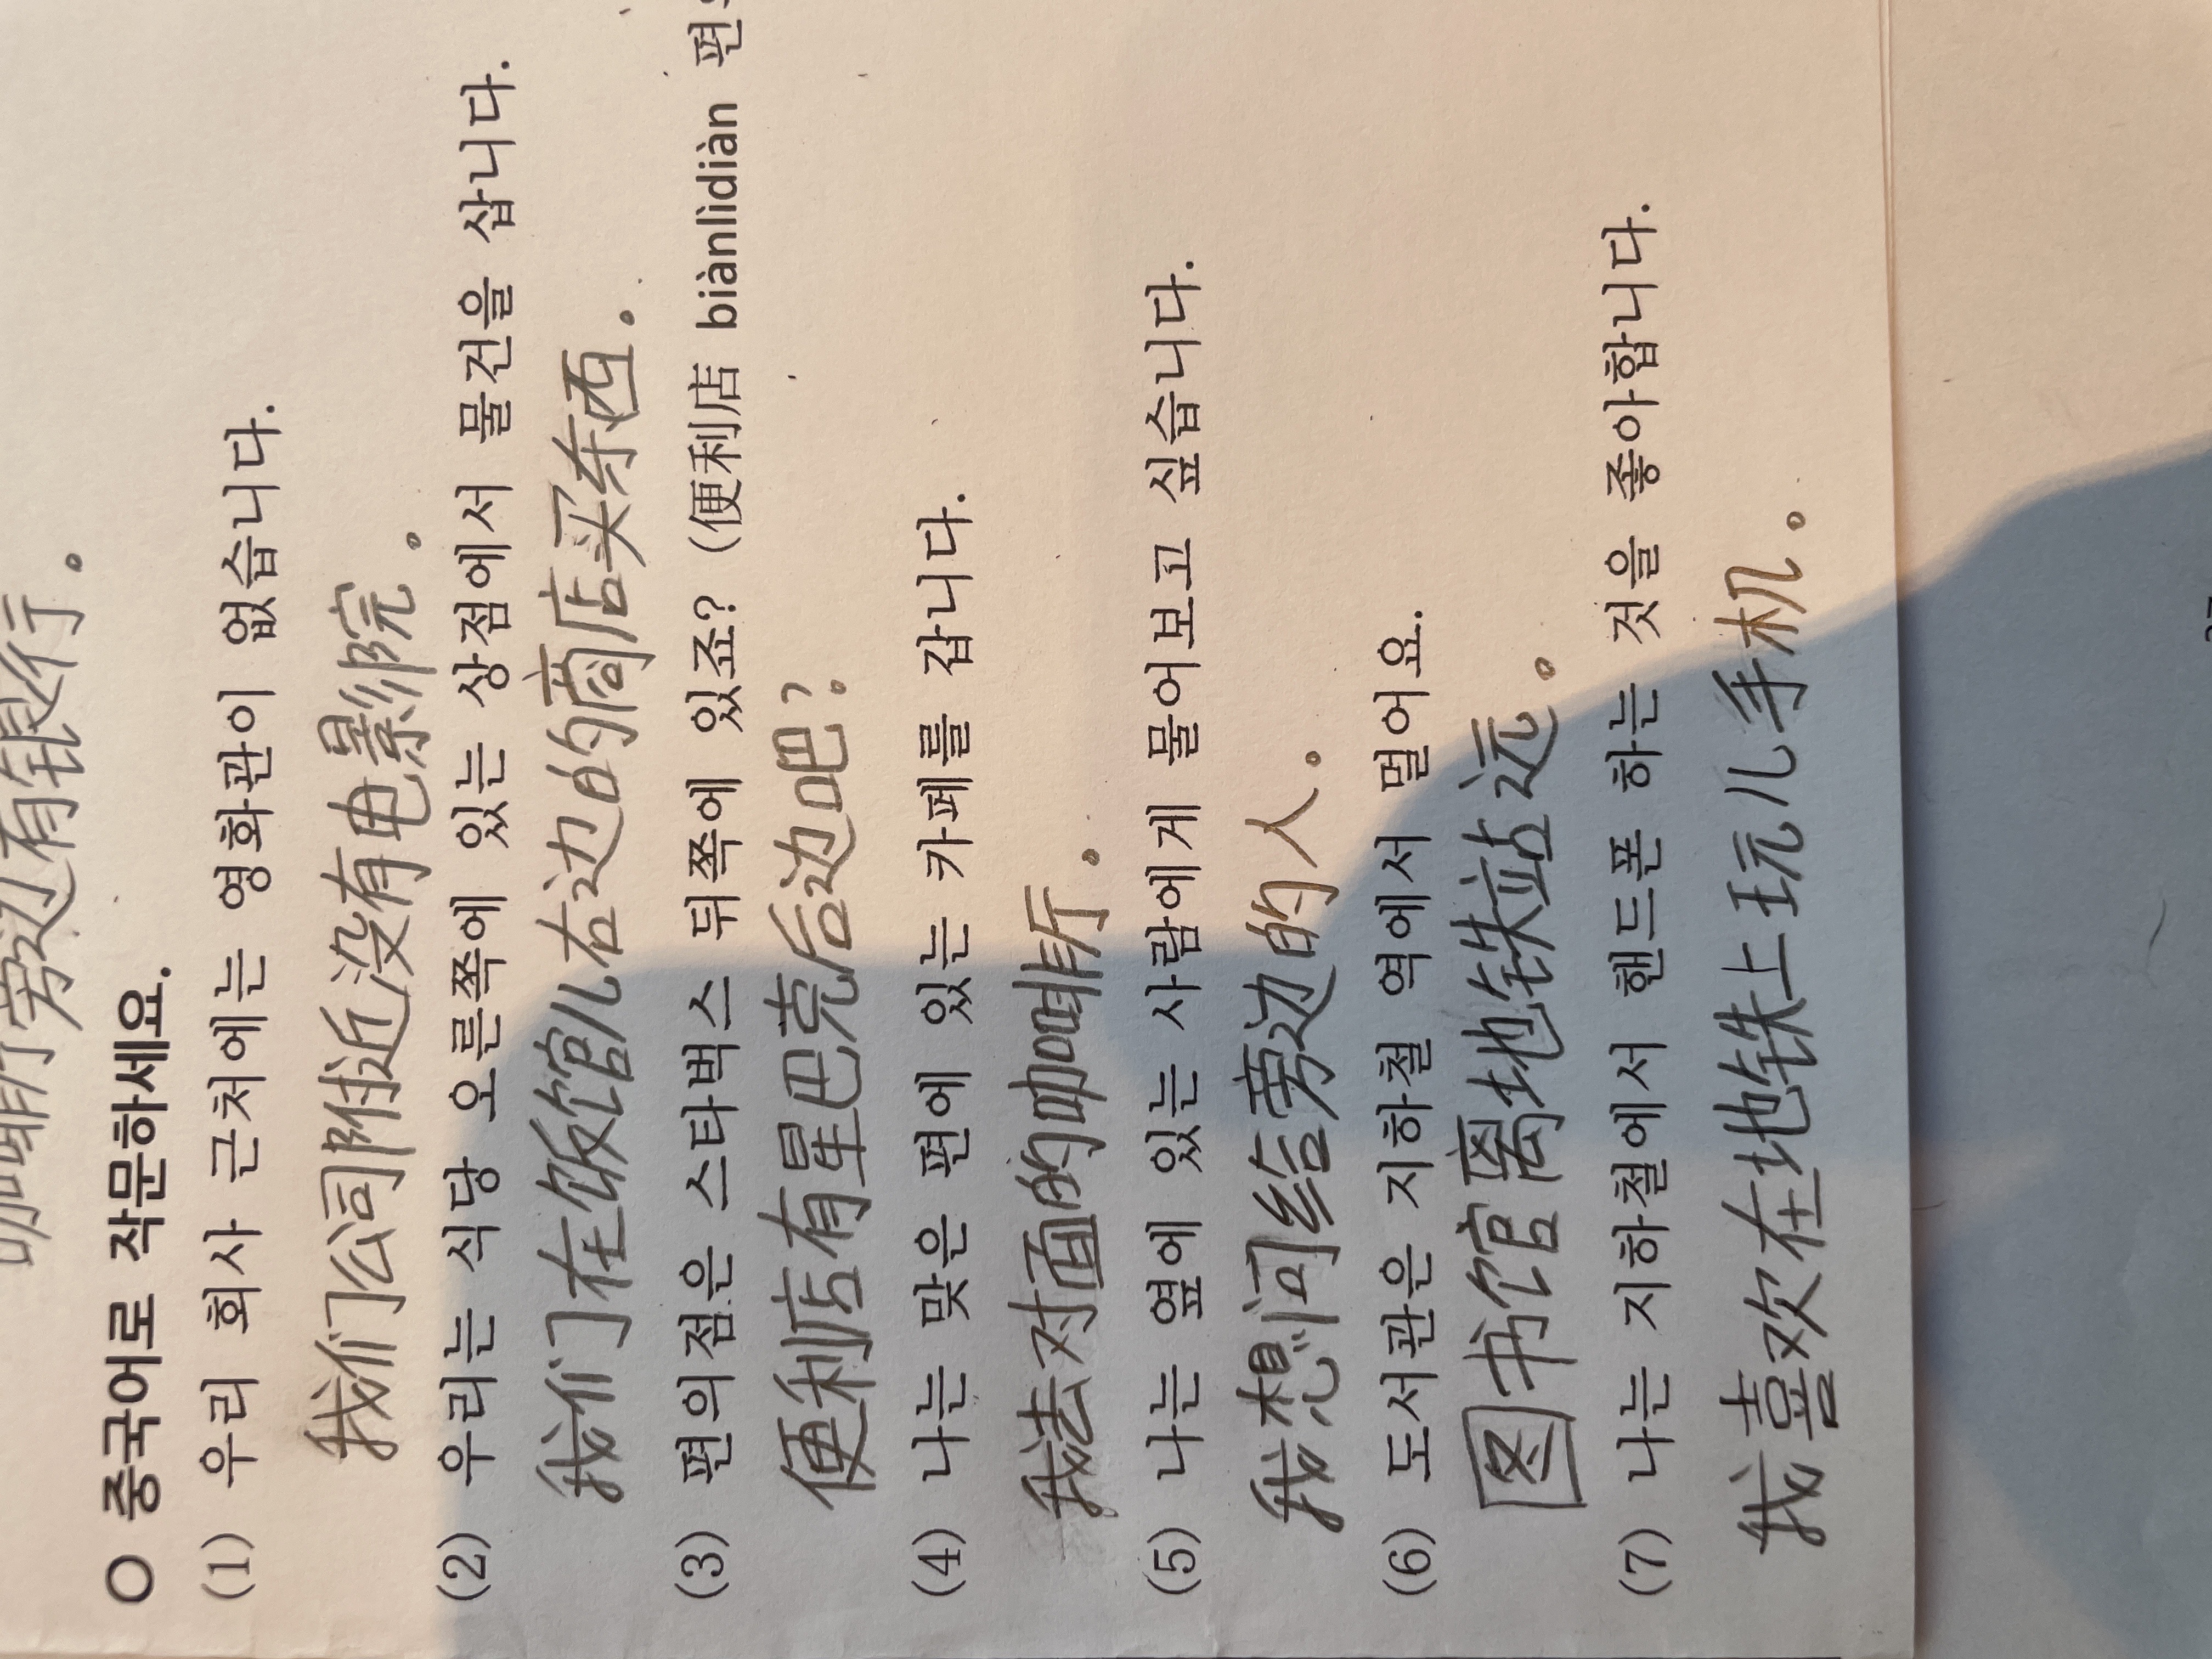 咖啡厅旁边有银行。
○ 중국어로 작문하세요.
(1) 우리 회사 근처에는 영화관이 없습니다.
我们公司附近没有电影院。
(2) 우리는 식당 오른쪽에 있는 상점에서 물건을 삽니다.
我们在饭馆儿右边的商店买东西。
(3) 편의점은 스타벅스 뒤쪽에 있죠? (便利店 biànlìdiàn 편
便利店有星巴克后边吧?
(4) 나는 맞은 편에 있는 카페를 갑니다.
我去对面的咖啡厅。
(5) 나는 옆에 있는 사람에게 물어보고 싶습니다.
我想问给旁边的人。
(6) 도서관은 지하철 역에서 멀어요.
图书馆离地铁站远。
(7) 나는 지하철에서 핸드폰 하는 것을 좋아합니다.
我喜欢在地铁上玩儿手机。